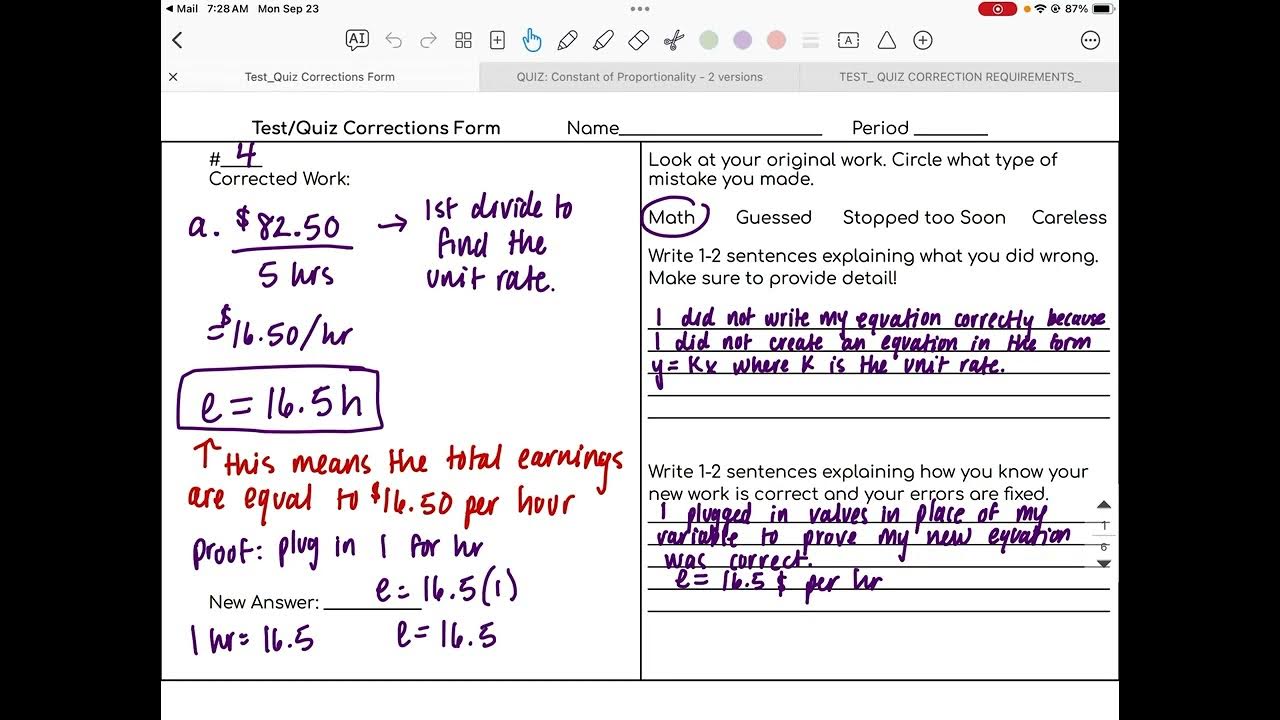 Mail 7:28 AM Mon Sep 23
87%
AI
A
Test_Quiz Corrections Form
QUIZ: Constant of Proportionality - 2 versions
TEST_ QUIZ CORRECTION REQUIREMENTS_
Test/Quiz Corrections Form Name______ Period ______
#4
Corrected Work:
a. $82.50
5 hrs
→ 1st divide to
find the
unit rate.
=$16.50/hr
e = 16.5h
↑ this means the total earnings
are equal to $16.50 per hour
Proof: plug in 1 for hr
e = 16.5(1)
New Answer: ______
1 hr = 16.5
e = 16.5
Look at your original work. Circle what type of
mistake you made.
Math Guessed Stopped too Soon Careless
Write 1-2 sentences explaining what you did wrong.
Make sure to provide detail!
I did not write my equation correctly because
I did not create an equation in the form
y = Kx where K is the unit rate.
Write 1-2 sentences explaining how you know your
new work is correct and your errors are fixed.
I plugged in values in place of my
variable to prove my new equation
was correct.
e = 16.5 $ per hr
1
6